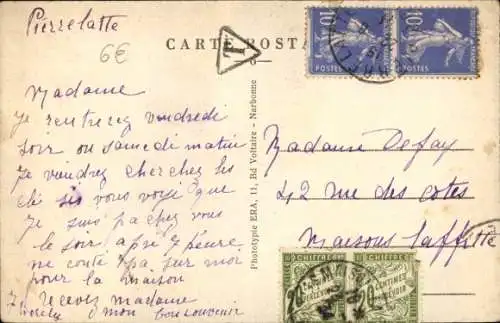 Pierrelatte
6€
CARTE POSTA
T
10c 10c
POSTES POSTES
Madame
je rentrerez vendredi
soir ou samedi matin
je vendrez chercher les
clé si vous voyé que
je suis pa chez vous
le soir apré 7 heure
ne conte pa sur moi
pour la maison
recevez madame
mon bon souvenir
Phototypie ERA, 11, Bd Voltaire - Narbonne
Madame Defay
42 rue des cotes
Maisons laffitte
CHIFFRE CHIFFRE
20 20
CENTIMES
A PERCEVOIR